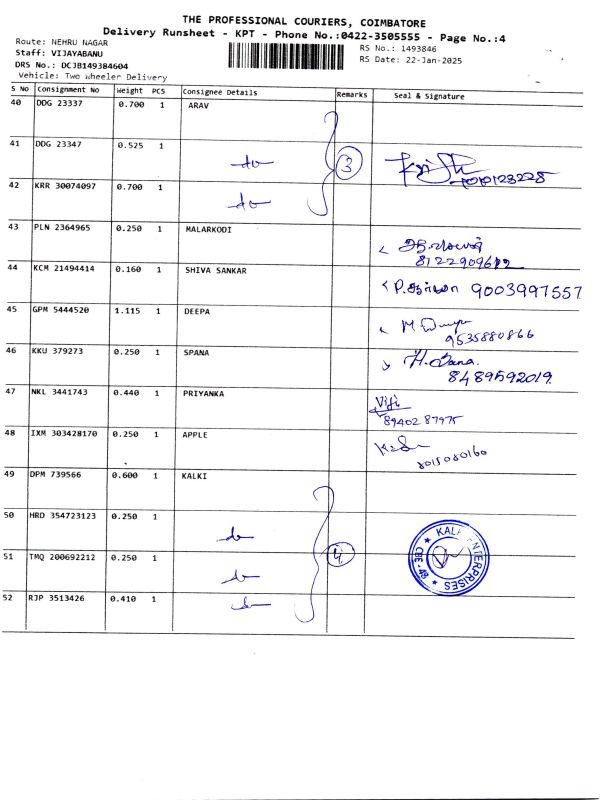 THE PROFESSIONAL COURIERS, COIMBATORE
Delivery Runsheet - KPT - Phone No.:0422-3505555 - Page No.:4
Route: NEHRU NAGAR
RS No.: 1493846
Staff: VIJAYABANU
RS Date: 22-Jan-2025
DRS No.: DCJB149384604
Vehicle: Two Wheeler Delivery
S No Consignment No Weight PCS Consignee Details Remarks Seal & Signature
40 DDG 23337 0.700 1 ARAV
41 DDG 23347 0.525 1 do 3
42 KRR 30074097 0.700 1 do
43 PLN 2364965 0.250 1 MALARKODI
8122909612
44 KCM 21494414 0.160 1 SHIVA SANKAR 9003997557
45 GPM 5444520 1.115 1 DEEPA
9535880866
46 KKU 379273 0.250 1 SPANA
8489592019
47 NKL 3441743 0.440 1 PRIYANKA Viji
8940287975
48 IXM 303428170 0.250 1 APPLE
8015080160
49 DPM 739566 0.600 1 KALKI
50 HRD 354723123 0.250 1 do
51 TMQ 200692212 0.250 1 do 4
52 RJP 3513426 0.410 1 do
KALKI ENTERPRISES
CBE-48